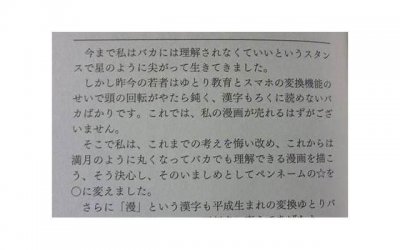 今まで私はバカには理解されなくていいというスタン
スで星のように尖がって生きてきました。
しかし昨今の若者はゆとり教育とスマホの変換機能の
せいで頭の回転がやたら鈍く、漢字もろくに読めないバ
カばかりです。これでは、私の漫画が売れるはずがござ
いません。
そこで私は、これまでの考えを悔い改め、これからは
満月のように丸くなってバカでも理解できる漫画を描こ
う、そう決心し、そのいましめとしてペンネームの☆を
○に変えました。
さらに「漫」という漢字も平成生まれの変換ゆとりバ